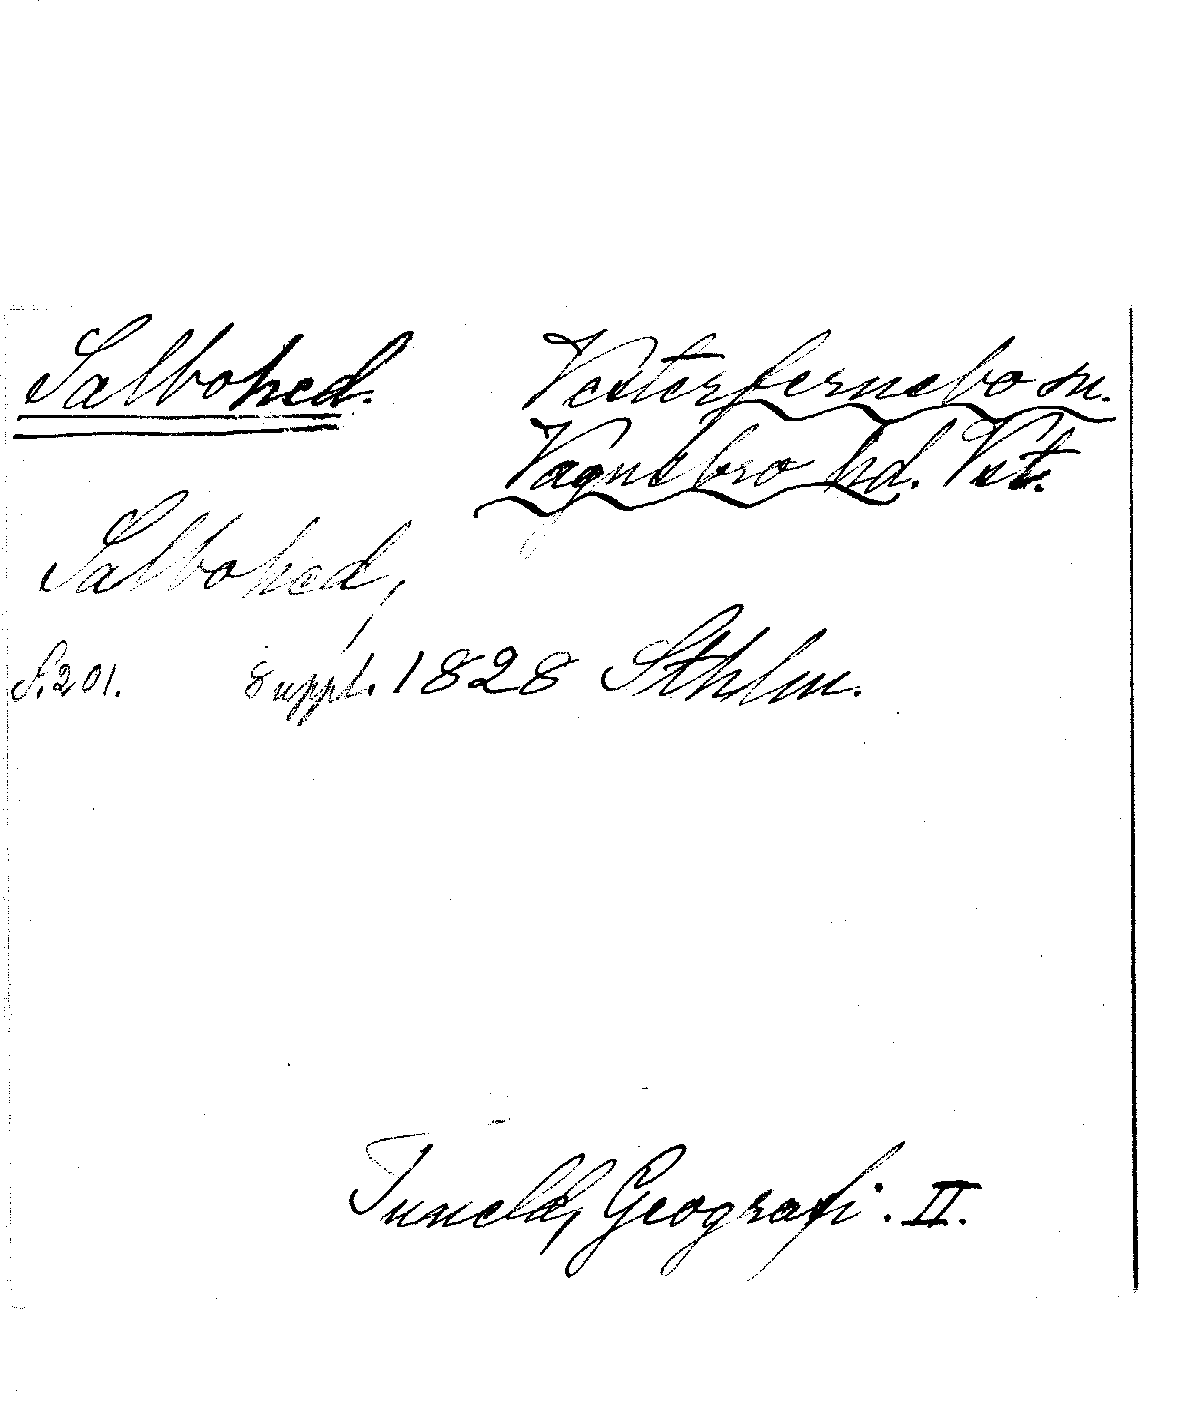 Salbohed. Vesterfernebo sn.
Vagnsbro hd. Vst.
Salbohed,
S. 201. Suppl. 1828 Sthlm.
Tuneld, Geografi. II.